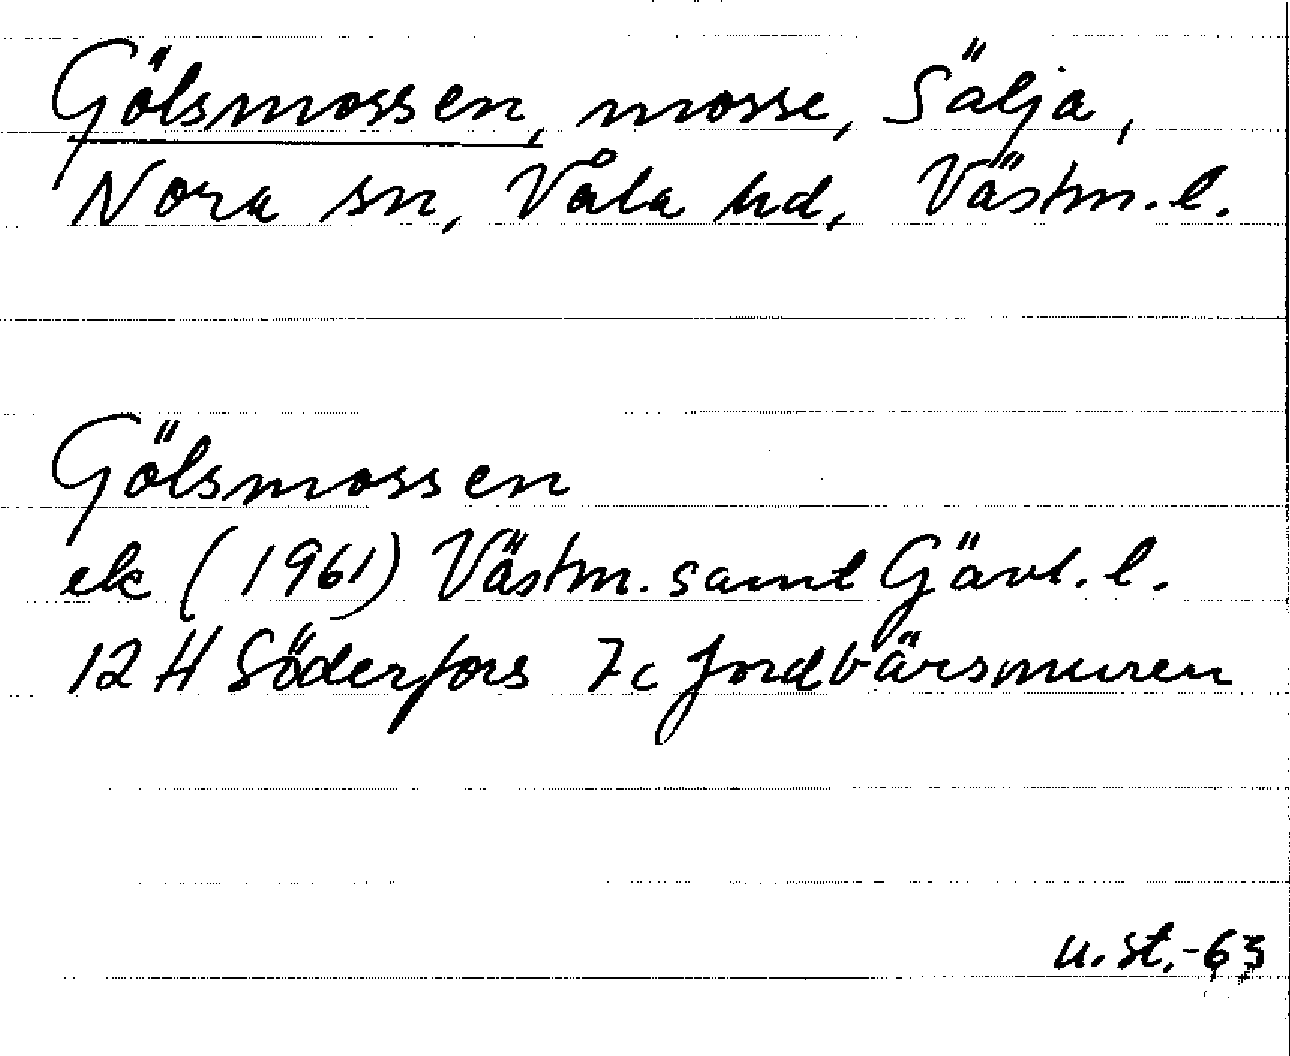 Gölsmossen, mosse, Sälja,
Nora sn, Våla hd, Västm. l.
Gölsmossen
ek (1961) Västm. samt Gävl. l.
12 H Söderfors 7c Jordbärsmuren
u. st. -63